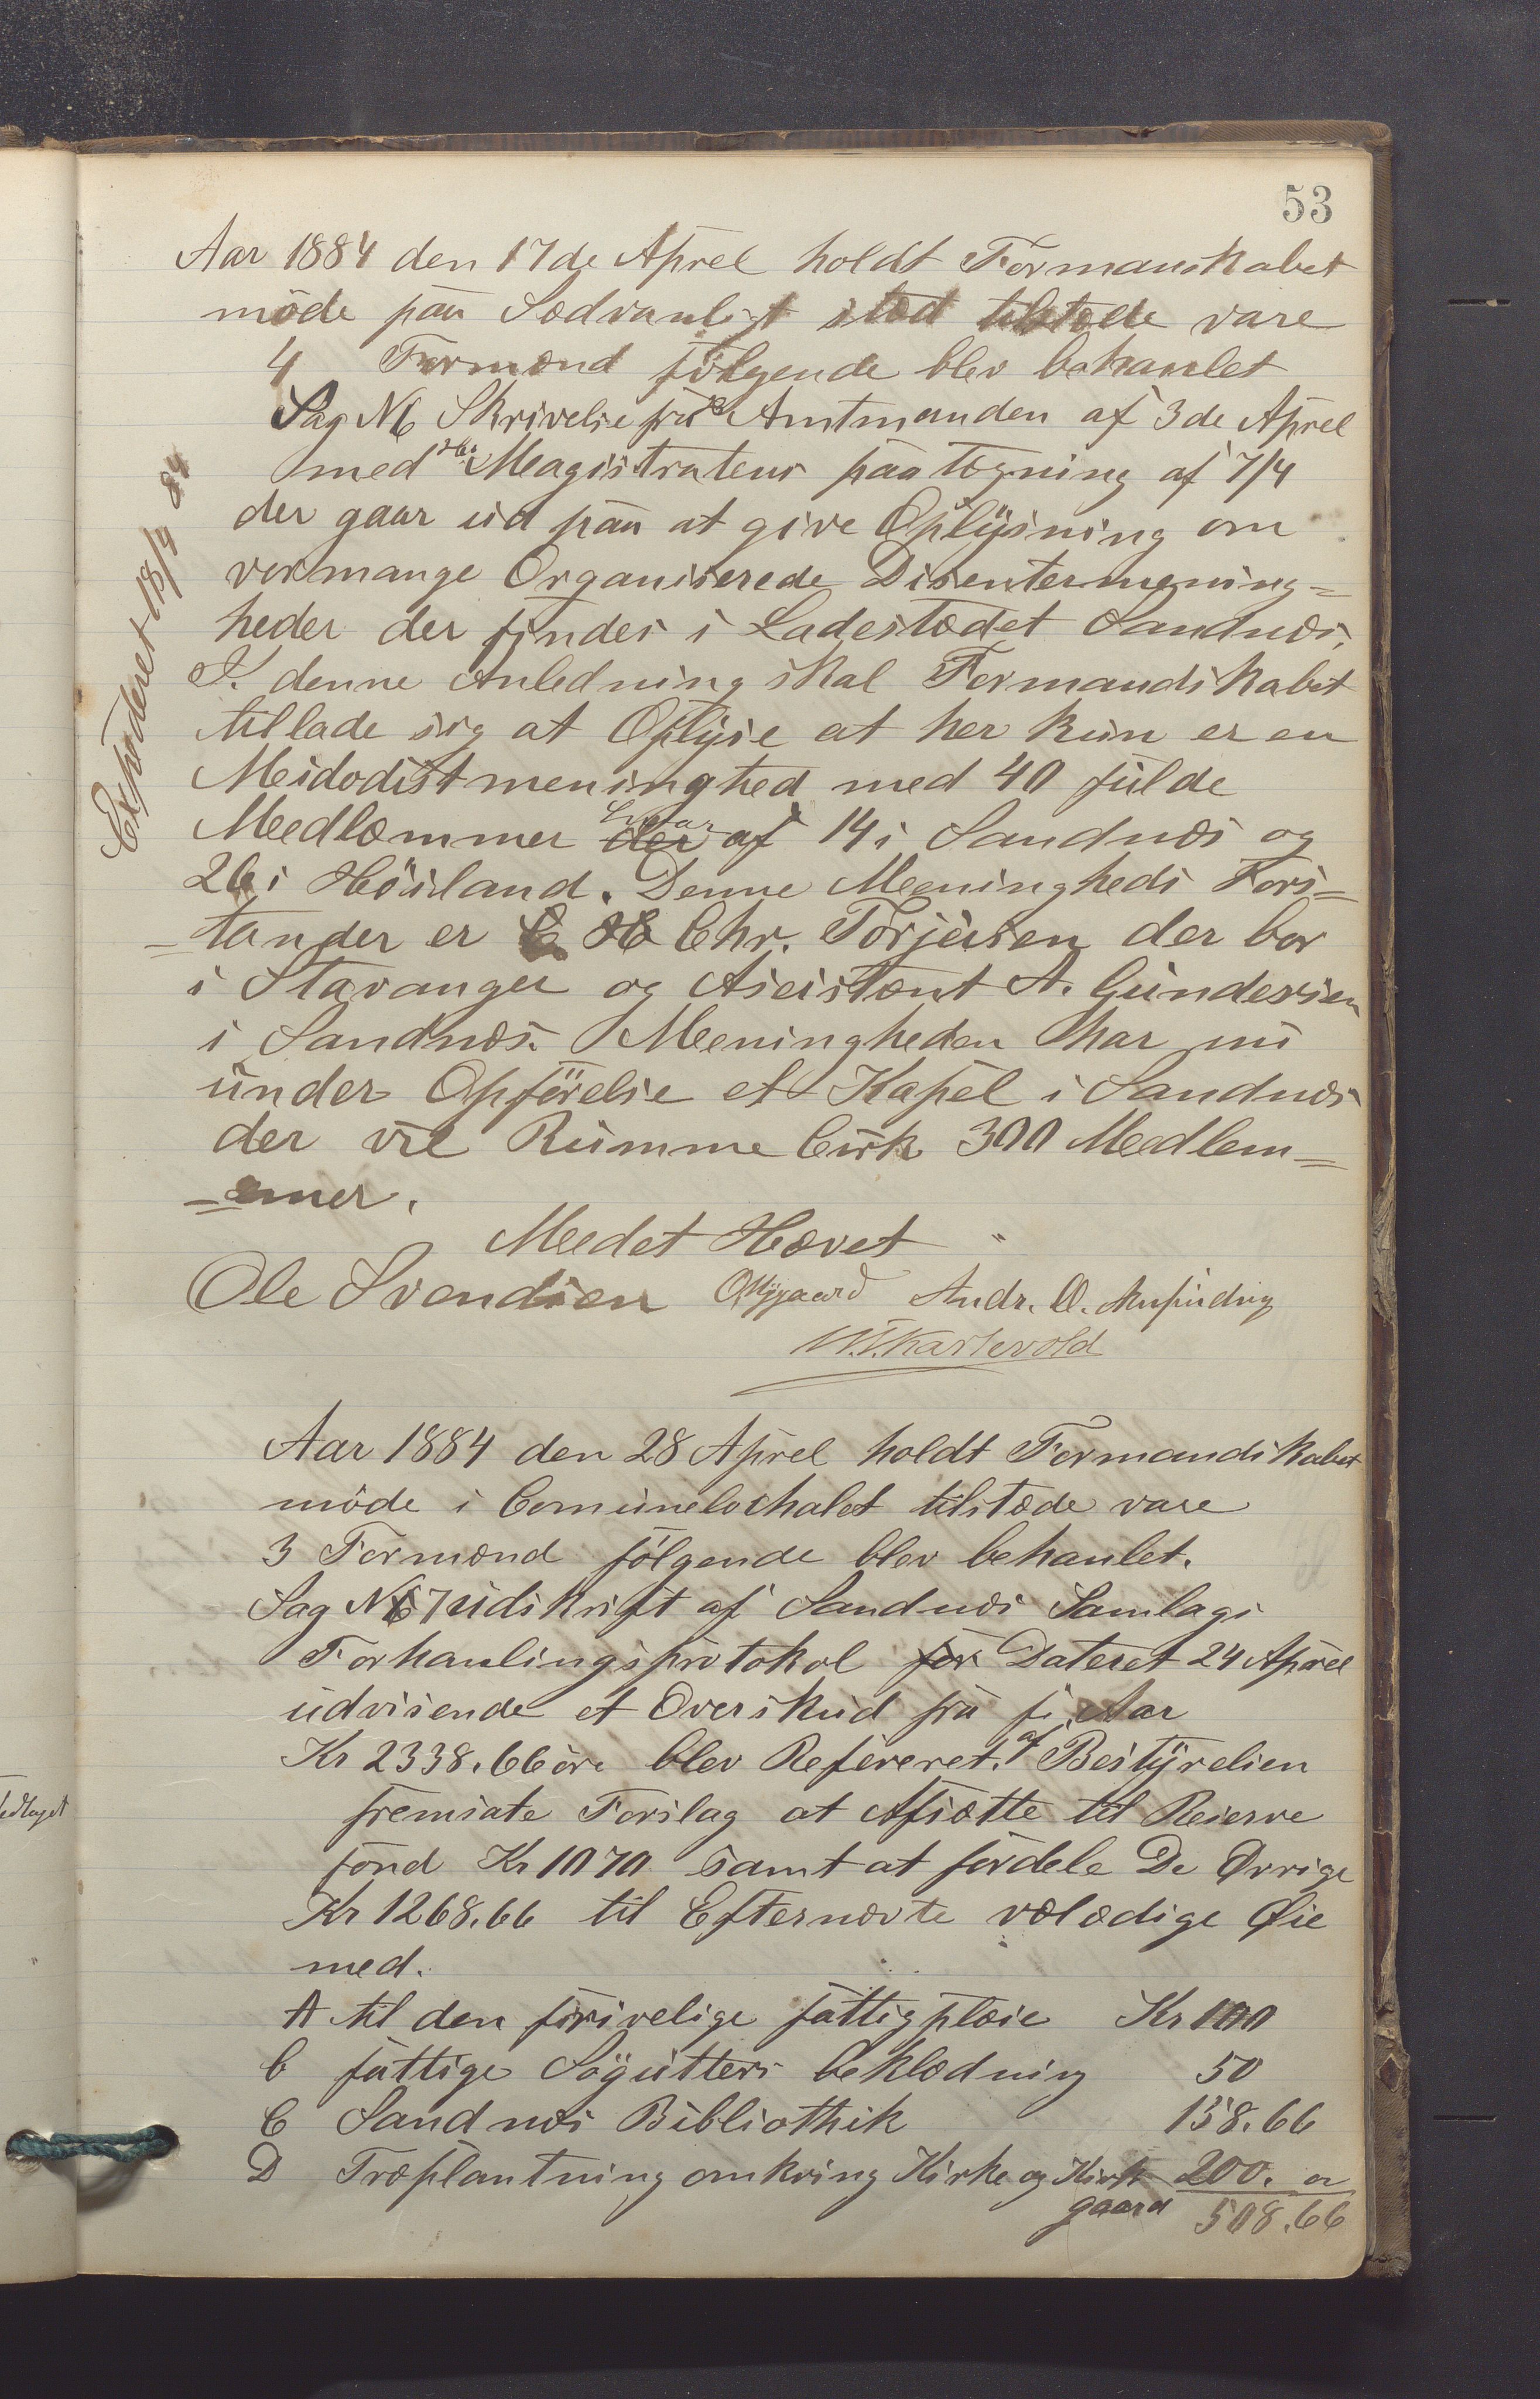 53
Aar 1884 den 17de Aprel holdt Formanskabet
møde paa Sædvanligt stæd tilstæde vare
4 Formænd følgende blev behanlet
Sag N 6 Skrivelse fra Amtmanden af 3de Aprel
med Magistratens paategning af 7/4
der gaar ud paa at give Oplysning om
vormange Organiserede Disentermening=
heder der findes i Ladestædet Sandnæs.
I denne Anledning skal Formandskabet
tillade sig at Oplyse at her kun er en
Meidodistmeninghed med 40 fulde
Medlæmmer der af 14 i Sandnæs og
26 i Høiland. Denne Meningheds Fors=
=tander er Chr. Torjusen der bor
i Stavanger og Asistænt A. Gundersen
i Sandnæs. Meningheden har nu
under Opførelse et Kapel i Sandnæs
der vil Rumme Cirk 300 Medlem=
=mer.
Mødet Hævet
Ole Svendsen O Nygaard Andr. O.
Karlevold
Expoderet 18/4 84
Aar 1884 den 28 Aprel holdt Formandskabet
møde i Comunelochalet tilstæde vare
3 Formænd følgende blev behanlet.
Sag N 7 udskrift af Sandnæs Samlags
Forhanlingsprotokol for Dateret 24 Aprel
udvisende et Overskud fra f. Aar
Kr 2338.66 øre blev Refereret. af Bestyrelsen
fremsate Forslag at Afsætte til Reserve
fond Kr 1070 samt at fordele De Øvrige
Kr 1268.66 til Efternævte vælædige Øie
med.
A til den frivelige fattigplæie Kr 100
b fattige Søgutters beklædning 50
C Sandnæs Bibliothik 158.66
D Træplantning omkring Kirke og Kirk 200. "
gaard 508.66